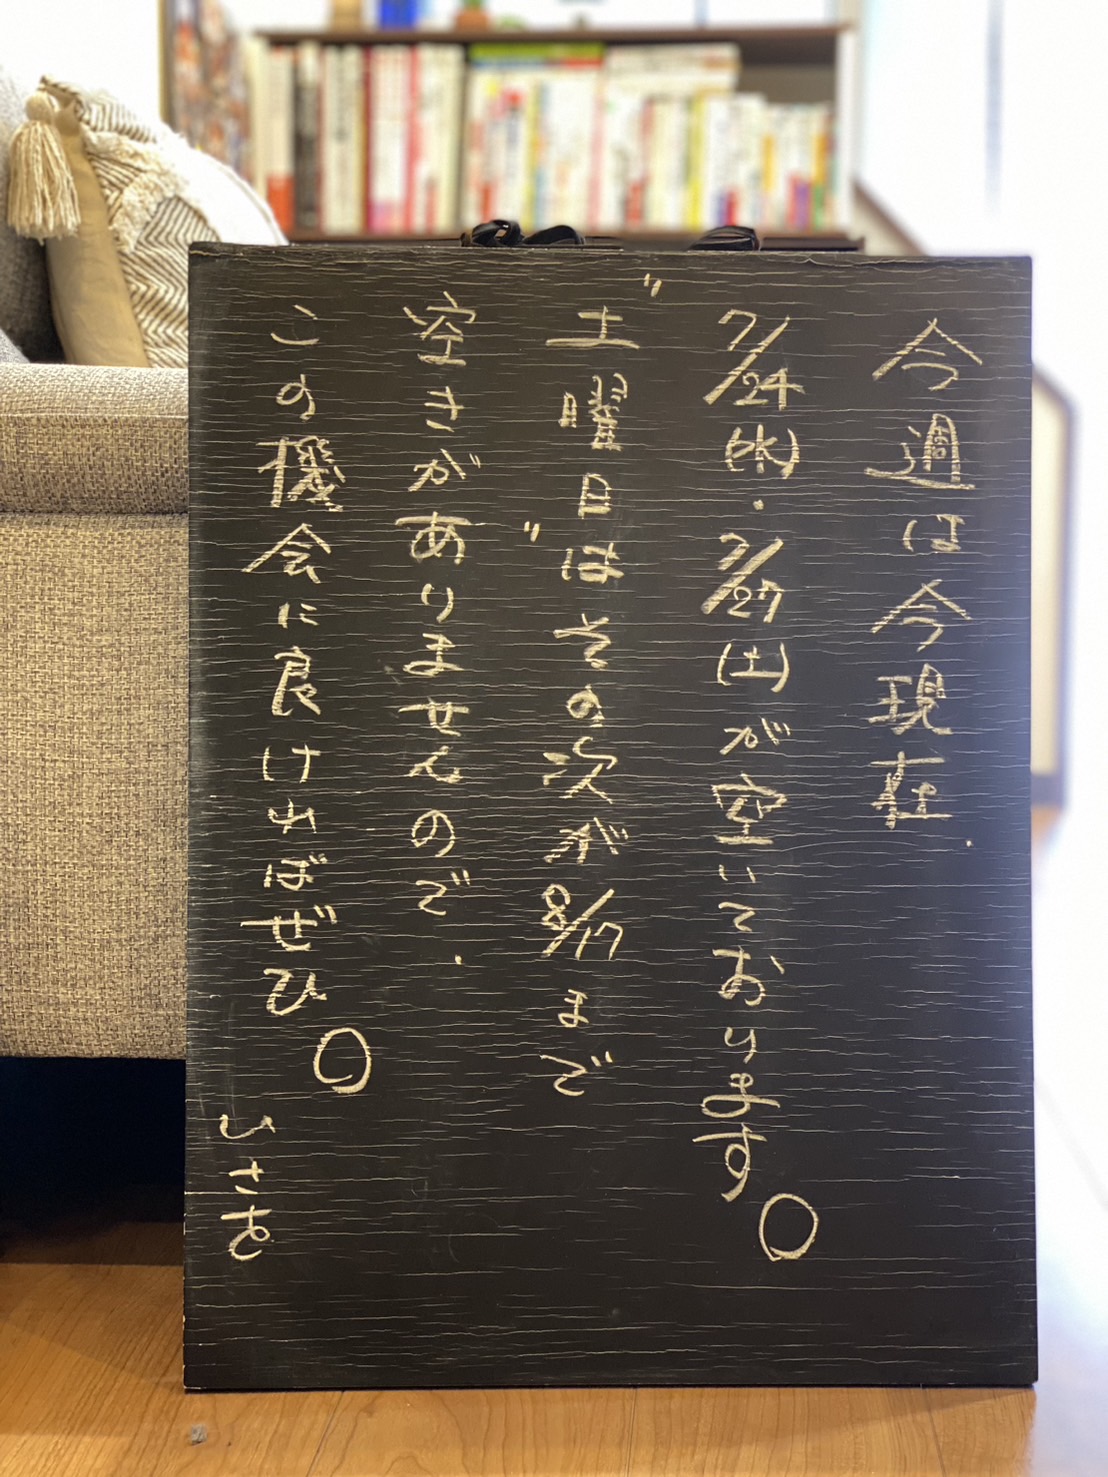 今週は今現在.
7/24(水)・7/27(土)が空いております。
"土曜日"はその次が8/17まで
空きがありませんので.
この機会に良ければぜひ。
ひさを